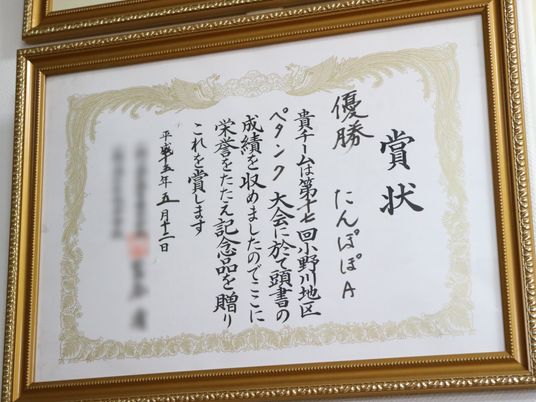 賞状
優勝 たんぽぽA
貴チームは第十七回小野川地区
ペタンク大会に於て頭書の
成績を収めましたのでここに
栄誉をたたえ記念品を贈り
これを賞します
平成十五年五月十二日